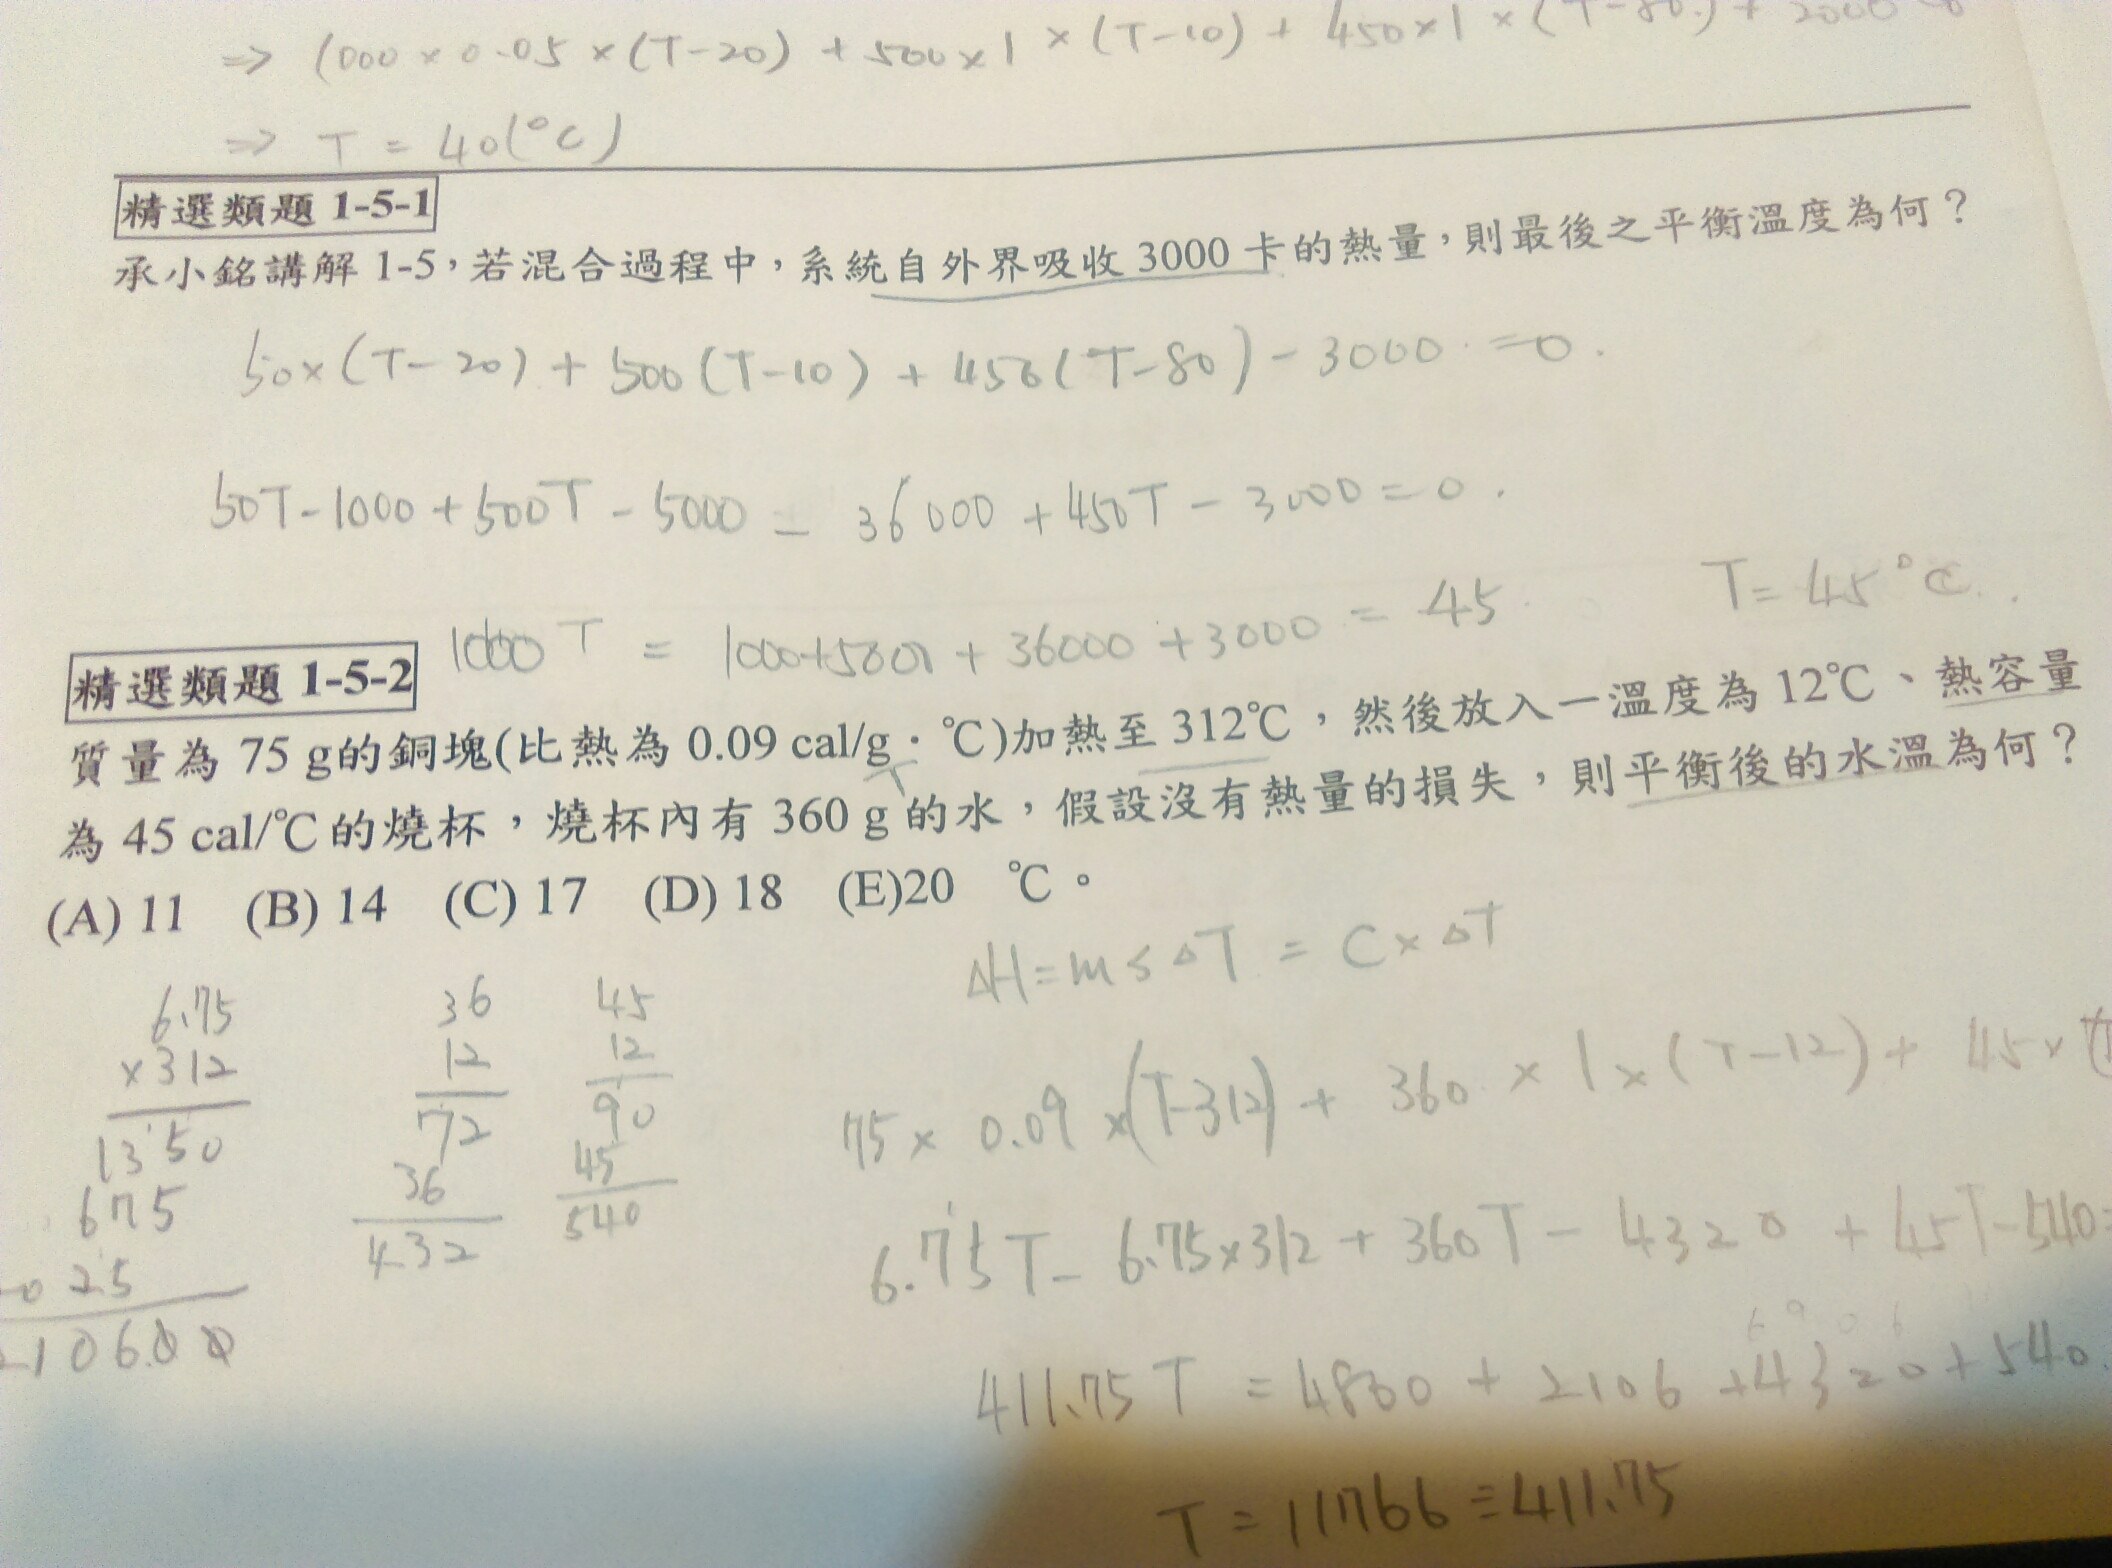 ⇒ 1000 × 0.05 × (T-20) + 500 × 1 × (T-10) + 450 × 1 × (T-80) + 2000
⇒ T = 40(°C)
精選類題 1-5-1
承小銘講解 1-5，若混合過程中，系統自外界吸收 3000 卡的熱量，則最後之平衡溫度為何？
50×(T-20) + 500(T-10) + 450(T-80) - 3000 = 0.
50T - 1000 + 500T - 5000 - 36000 + 450T - 3000 = 0.
1000T = 1000+5000 + 36000 + 3000 = 45 T = 45°C.
精選類題 1-5-2
質量為 75 g的銅塊(比熱為 0.09 cal/g · ℃)加熱至 312℃，然後放入一溫度為 12℃、熱容量
為 45 cal/℃的燒杯，燒杯內有 360 g 的水，假設沒有熱量的損失，則平衡後的水溫為何？
(A) 11 (B) 14 (C) 17 (D) 18 (E)20 ℃。
ΔH = msΔT = C×ΔT
6.75
×312
1350
675
025
210600
36
12
72
36
432
45
12
90
45
540
75 × 0.09 × (T-312) + 360 × 1 × (T-12) + 45 ×
6.75T - 6.75×312 + 360T - 4320 + 45T - 540=
411.75 T = 4860 + 2106 + 4320 + 540
T = 11766 ÷ 411.75